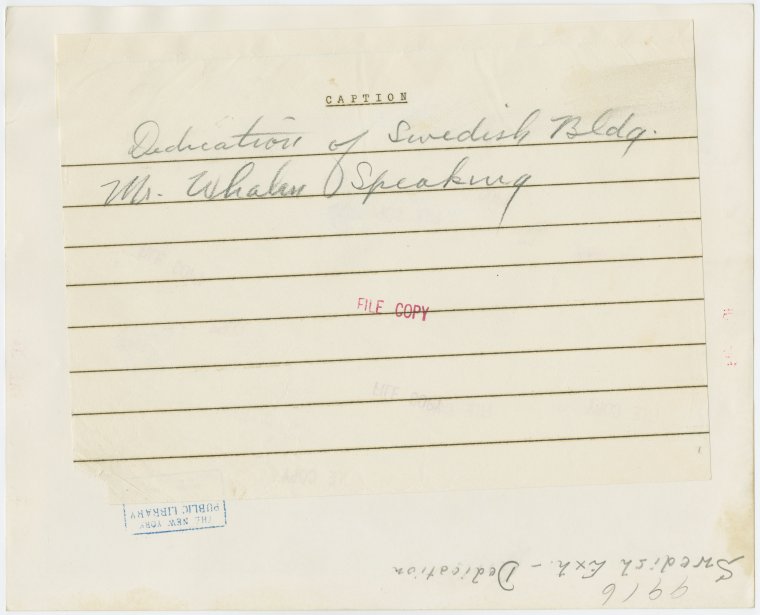 CAPTION
Dedication of Swedish Bldg.
Mr. Whalen Speaking
FILE COPY
THE NEW YORK
PUBLIC LIBRARY
9916
Swedish Exh. - Dedication